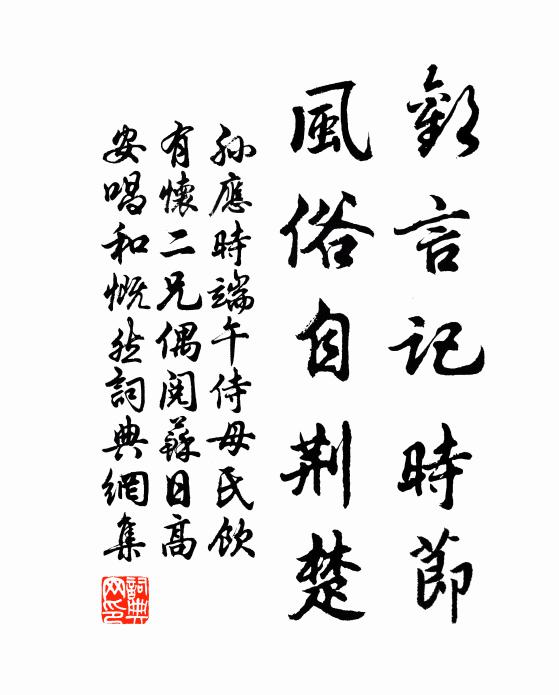 歡言記時節
風俗自荆楚
孫應時端午侍母氏飲
有懷二兄偶閱蘇日高
安唱和慨然詞典網集
詞典网印